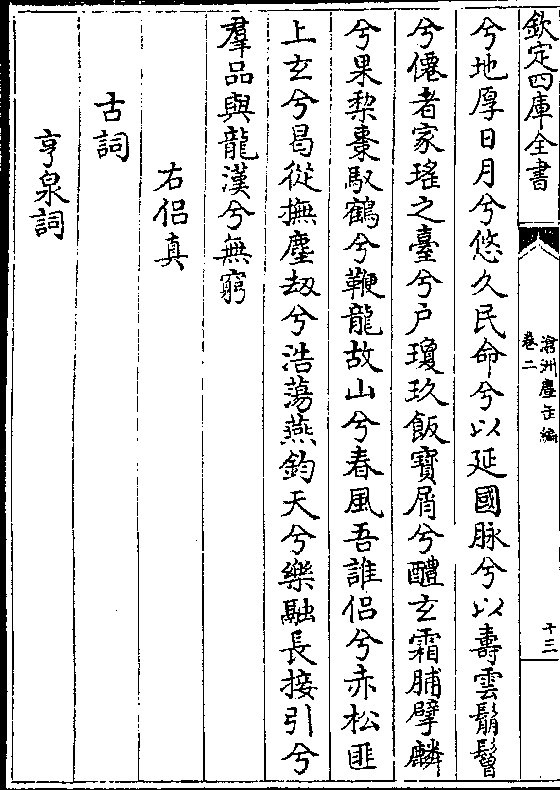 欽定四庫全書
滄洲塵缶編
卷二
十三
兮地厚日月兮悠久民命兮以延國脉兮以壽雲鬅鬙
兮僊者家瑤之臺兮户瓊玖飯寶屑兮醴玄霜脯擘麟
兮果棃棗馭鶴兮鞭龍故山兮春風吾誰侣兮赤松匪
上玄兮曷從撫塵刼兮浩蕩燕鈞天兮樂融長接引兮
羣品與龍漢兮無窮
右侣真
古詞
亨泉詞